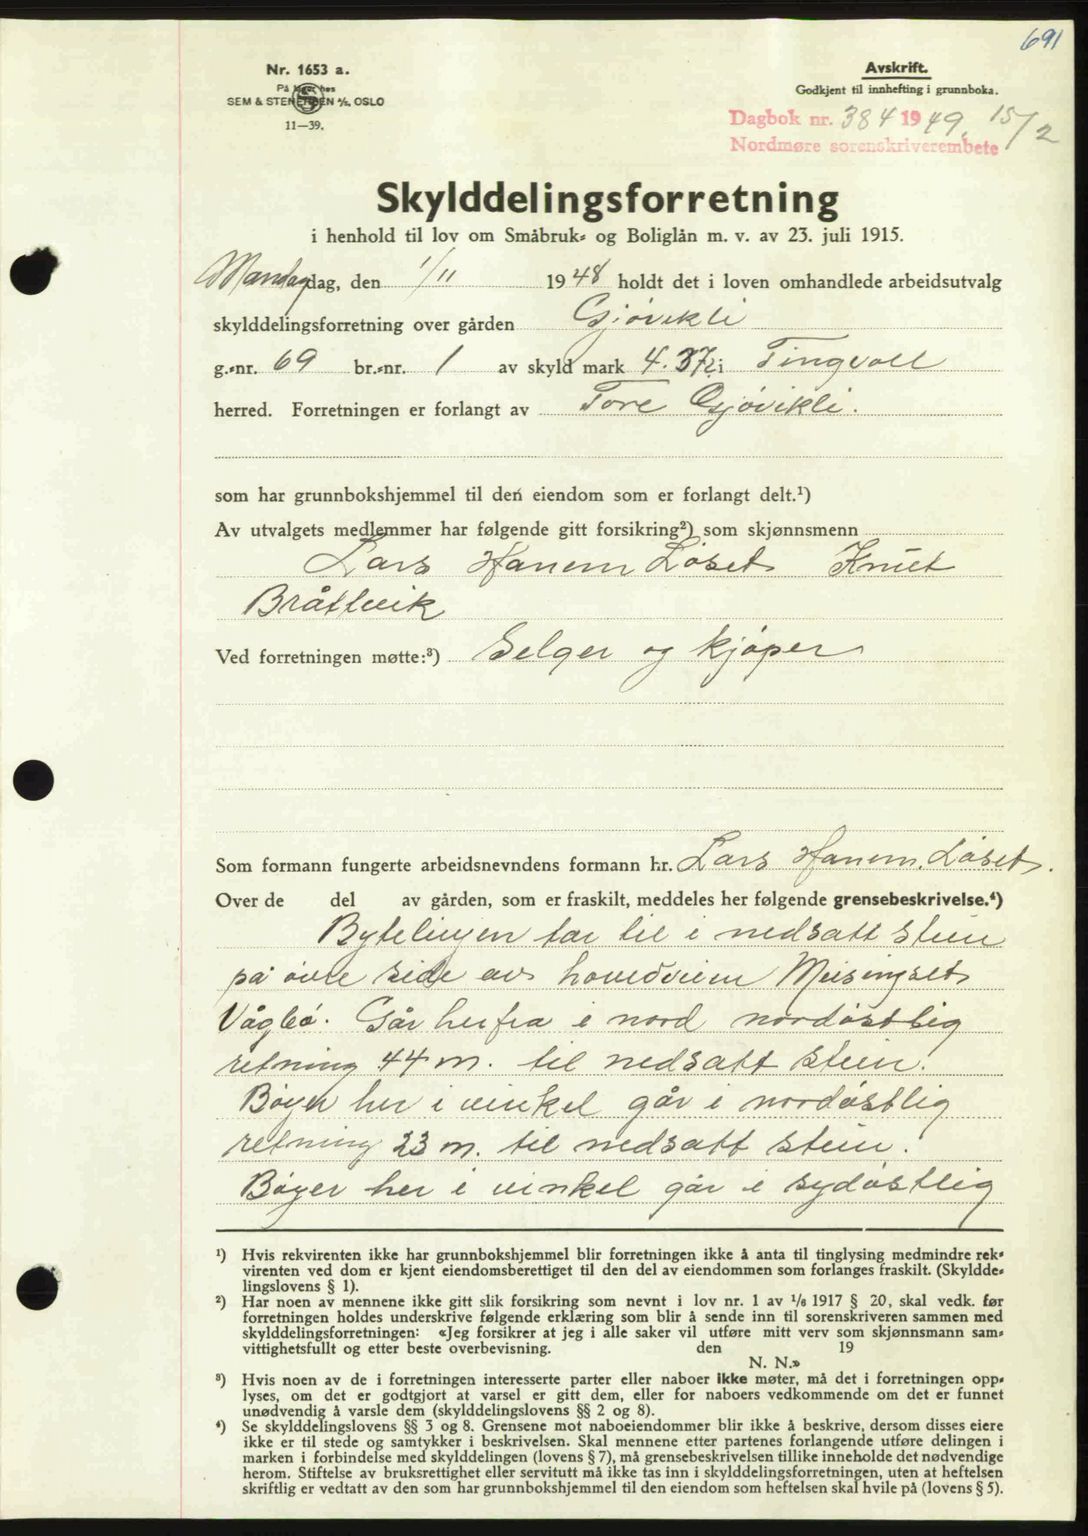 691
Nr. 1653 a.
På lager hos
SEM & STENERSEN A/S, OSLO
11—39.
Avskrift.
Godkjent til innhefting i grunnboka.
Dagbok nr. 384 1949. 15/2
Nordmøre sorenskriverembete
Skylddelingsforretning
i henhold til lov om Småbruk- og Boliglån m. v. av 23. juli 1915.
Mandag dag, den 1/11 1948 holdt det i loven omhandlede arbeidsutvalg
skylddelingsforretning over gården Gjøvikli
g.-nr. 69 br.-nr. 1 av skyld mark 4.37 i Tingvoll
herred. Forretningen er forlangt av Tore Gjøvikli.
som har grunnbokshjemmel til den eiendom som er forlangt delt.¹)
Av utvalgets medlemmer har følgende gitt forsikring²) som skjønnsmenn
Lars Hanem Løset Knut
Bråttvik
Ved forretningen møtte:³) Selger og kjøper
Som formann fungerte arbeidsnevndens formann hr. Lars Hanem. Løset.
Over de del av gården, som er fraskilt, meddeles her følgende grensebeskrivelse.⁴)
Bytelinjen tar til i nedsatt stein
på øvre side av hovedveien Meisingset
Vågbø. Går herfra i nord nordøstlig
retning 44 m. til nedsatt stein.
Bøyer her i vinkel går i nordøstlig
retning 23 m. til nedsatt stein.
Bøyer her i vinkel går i sydøstlig
¹) Hvis rekvirenten ikke har grunnbokshjemmel blir forretningen ikke å anta til tinglysing medmindre rek-
virenten ved dom er kjent eiendomsberettiget til den del av eiendommen som forlanges fraskilt. (Skyldde-
lingslovens § 1).
²) Har noen av mennene ikke gitt slik forsikring som nevnt i lov nr. 1 av 1/6 1917 § 20, skal vedk. før
forretningen holdes underskrive følgende erklæring som blir å sende inn til sorenskriveren sammen med
skylddelingsforretningen: «Jeg forsikrer at jeg i alle saker vil utføre mitt verv som skjønnsmann sam-
vittighetsfullt og etter beste overbevisning. den 19
N. N.»
³) Hvis noen av de i forretningen interesserte parter eller naboer ikke møter, må det i forretningen opp-
lyses, om det er godtgjort at varsel er gitt dem, eller for naboers vedkommende om det er funnet
unødvendig å varsle dem (skylddelingslovens §§ 2 og 8).
⁴) Se skylddelingslovens §§ 3 og 8. Grensene mot naboeiendommer blir ikke å beskrive, dersom disses eiere
ikke er til stede og samtykker i beskrivelsen. Skal mennene etter partenes forlangende utføre delingen i
marken i forbindelse med skylddelingen (lovens § 7), må grensebeskrivelsen tillike inneholde det nødvendige
herom. Stiftelse av bruksrettighet eller servitutt må ikke tas inn i skylddelingsforretningen, uten at heftelsen
skriftlig er vedtatt av den som har grunnbokshjemmel til den eiendom som heftelsen skal hvile på (lovens § 5).